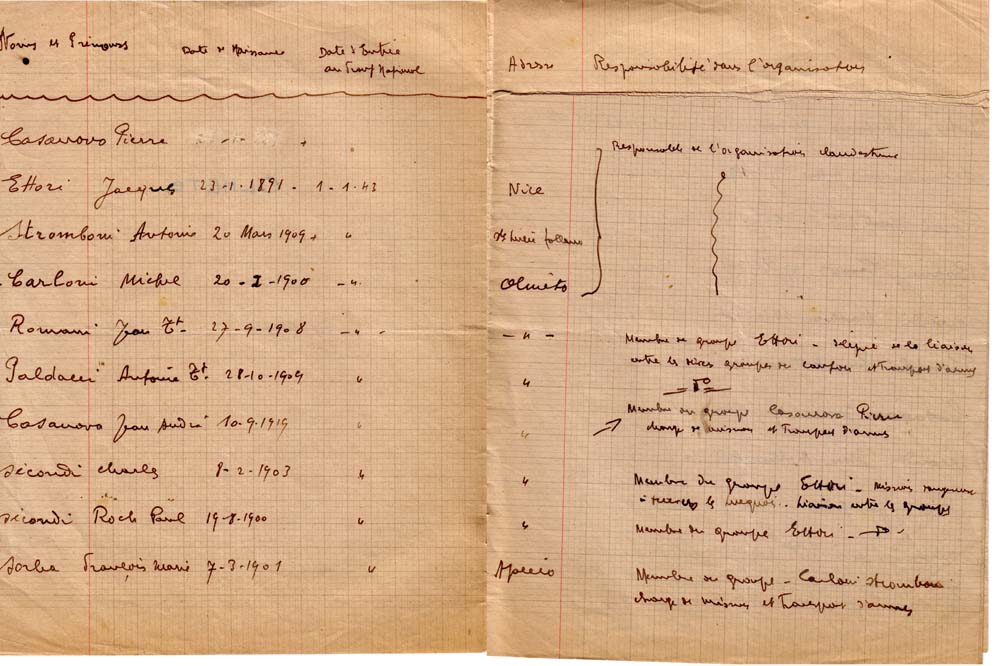 Noms et Prénoms Date de Naissance Date d'Entrée
au Front National
Adresse Responsabilité dans l'organisation
Casanova Pierre
Responsable de l'organisation clandestine
Ettori Jacques 23-1-1891 - 1-1-43 Nice
Stromboni Antoine 20 Mars 1909 "
Carloni Michel 20-I-1900 - " Olmeto
Romani Jean Bt - 27-9-1908 - " - - " -
Membre du groupe Ettori - délégué de la liaison
entre les groupes de et Transport d'armes
Paldacci Antoine Bt. 28-10-1909 " "
Casanova Jean André 10-9-1919 " "
Membre du groupe Casanova Pierre
chargé de mission et Transport d'armes
Secondi Charles 8-2-1903 " "
Membre du groupe Ettori - missions
les Liaison entre les groupes
Secondi Roch Paul 19-8-1900 " "
Membre du groupe Ettori -
Sorba François Marie 7-3-1901 " Ajaccio
Membre du groupe - Carloni Stromboni
chargé de missions et Transport d'armes